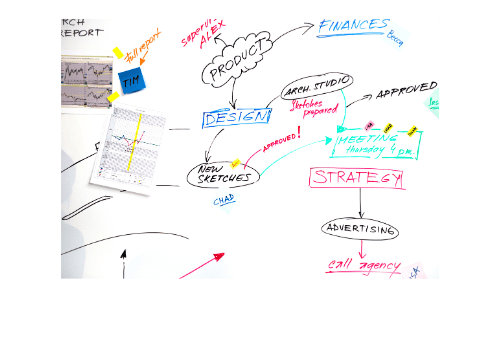 RCH
REPORT
full report
TIM
supervis.
ALEX
PRODUCT
FINANCES
Becca
ARCH. STUDIO
Sketches
prepared
APPROVED
DESIGN
APPROVED!
MEETING
thursday 4 p.m.
NEW
SKETCHES
CHAD
STRATEGY
ADVERTISING
call agency